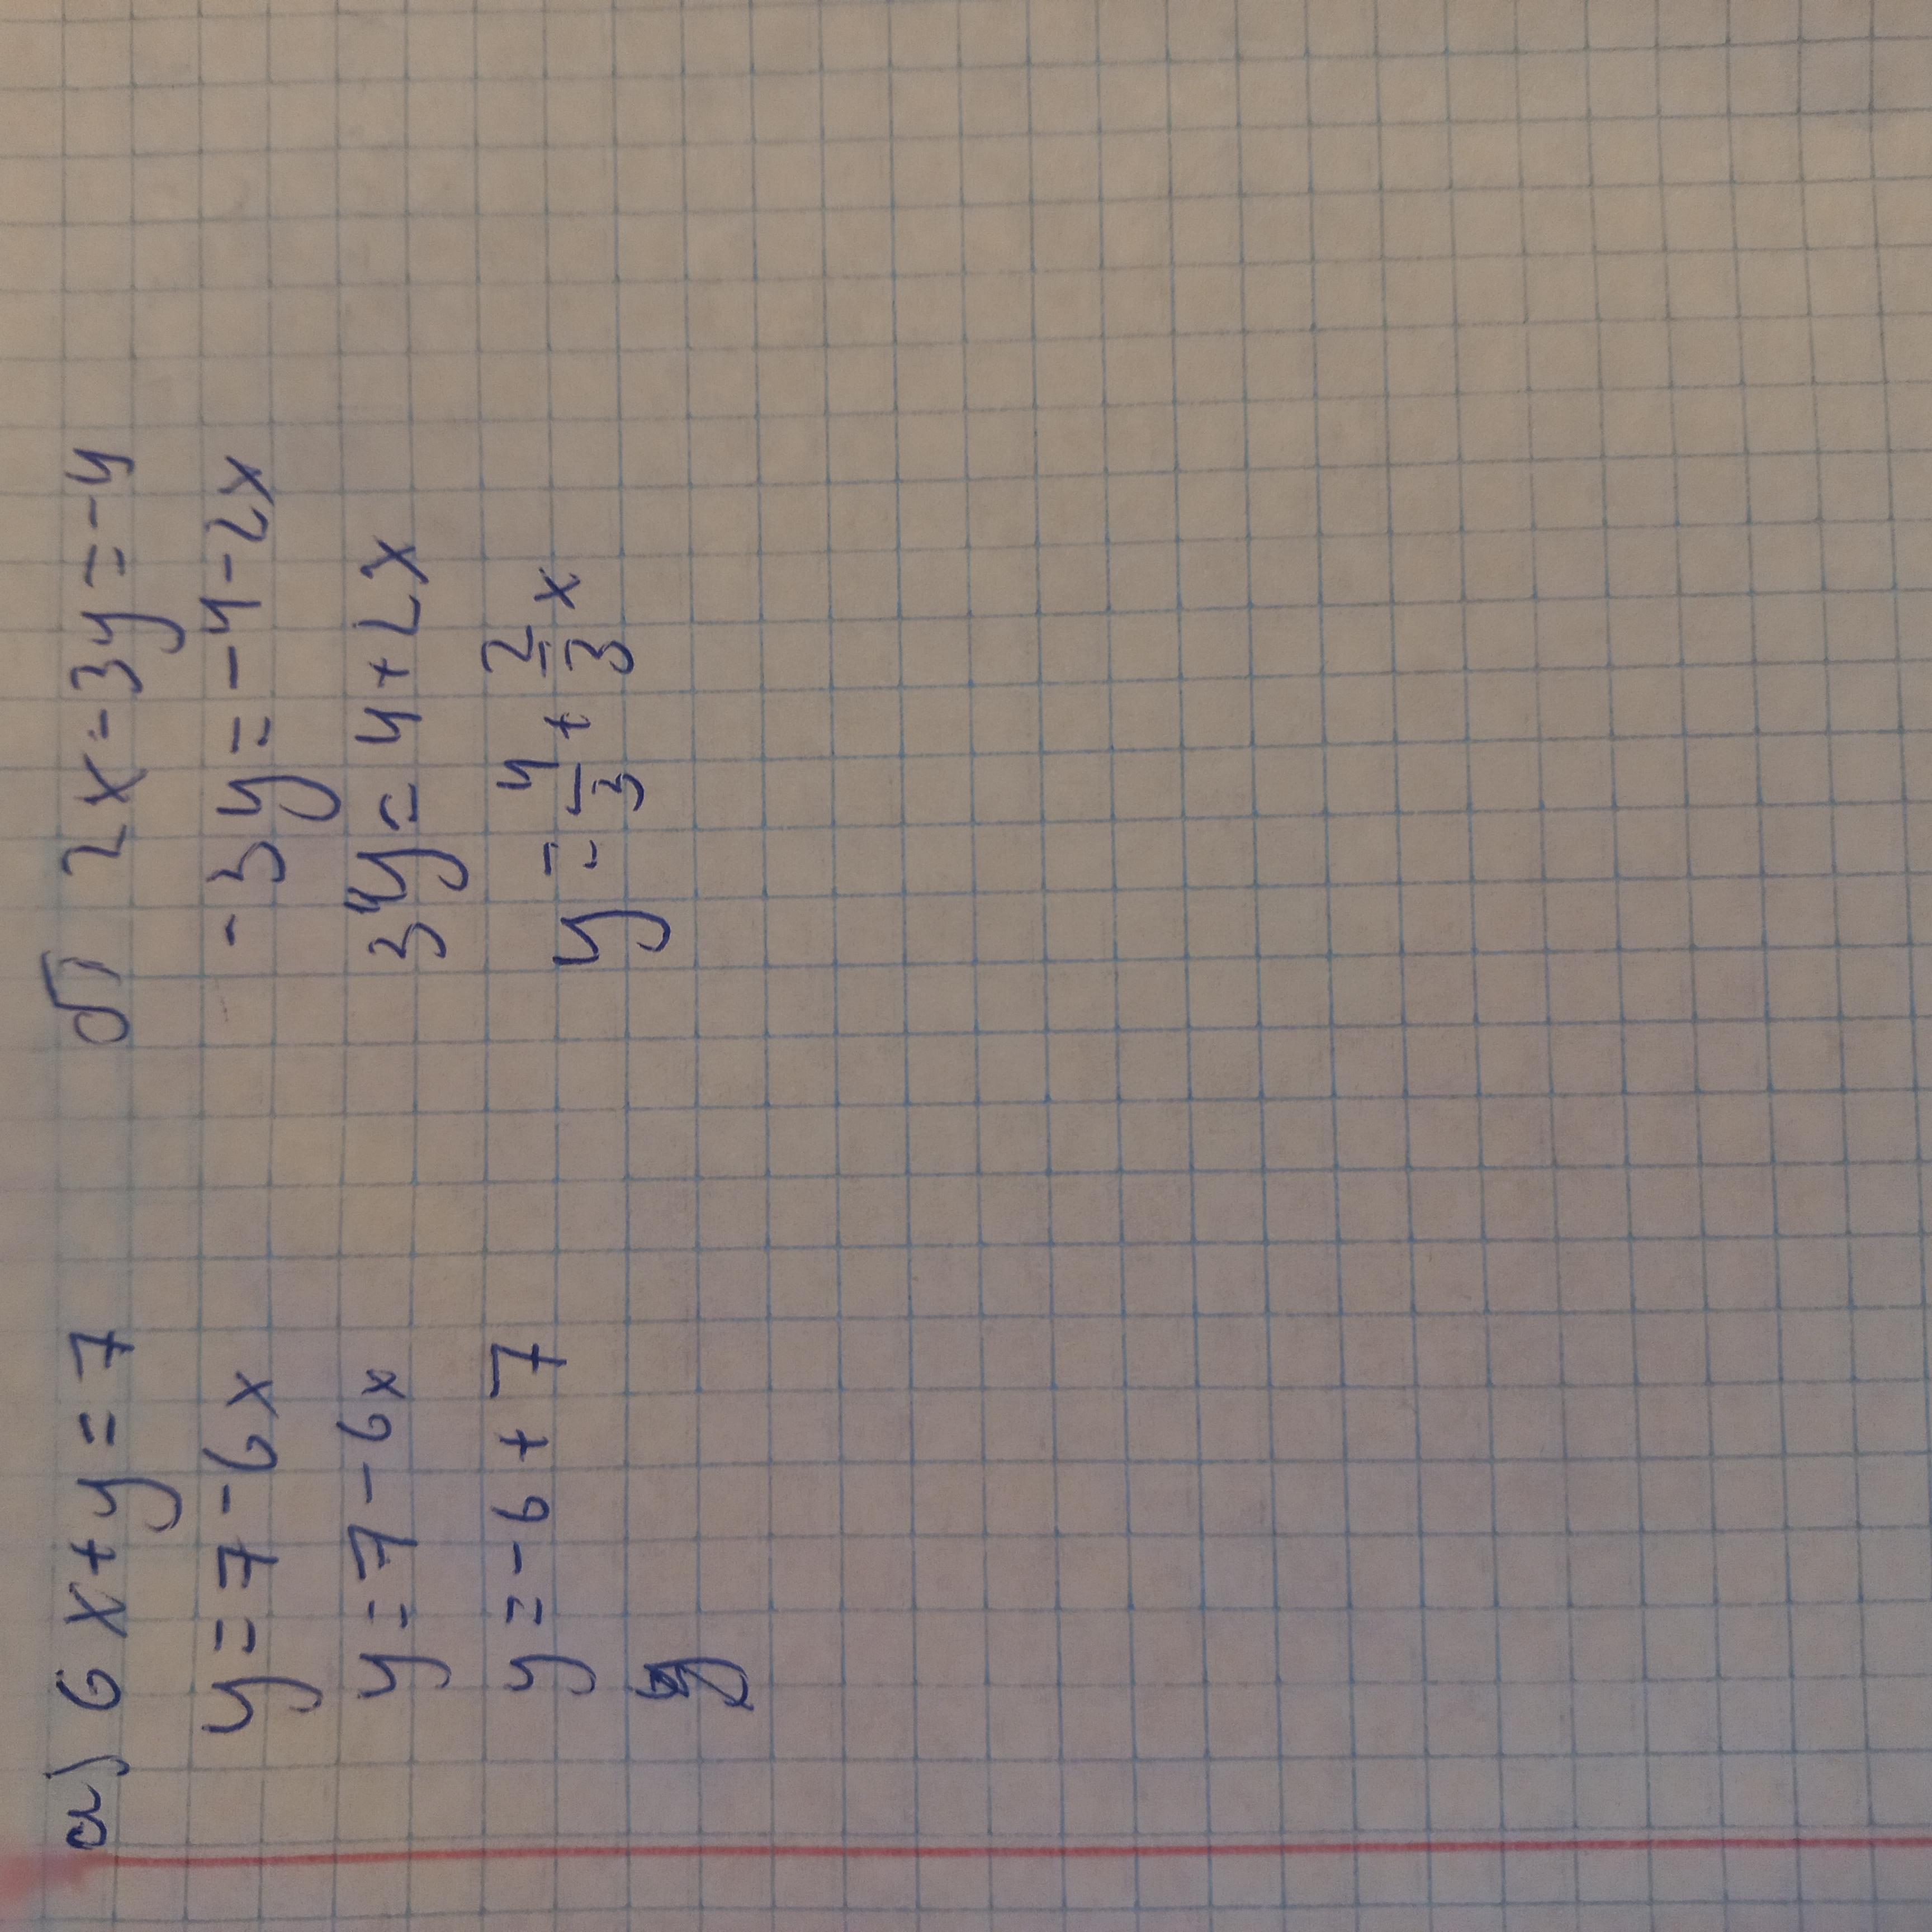 а) 6x+y=7
y=7-6x
y=7-6x
y=-6+7
y
б) 2x-3y=-4
-3y=-4-2x
3y=4+2x
y=4/3+2/3x